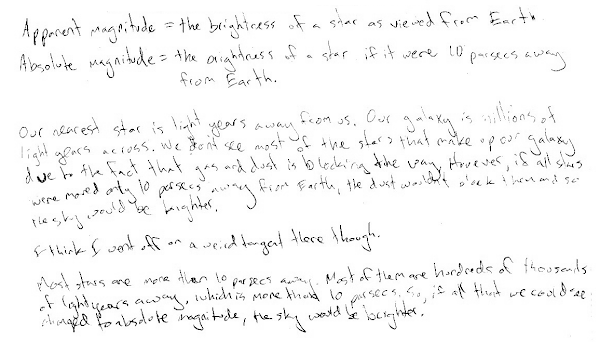 Apparent magnitude = the brightness of a star as viewed from Earth.
Absolute magnitude = the brightness of a star if it were 10 parsecs away
from Earth.
Our nearest star is light years away from us. Our galaxy is millions of
light years across. We don't see most of the stars that make up our galaxy
due to the fact that gas and dust is blocking the way. However, if all stars
were moved only 10 parsecs away from Earth, the dust wouldn't block them and so
the sky would be brighter.
I think I went off on a weird tangent there though.
Most stars are more than 10 parsecs away. Most of them are hundreds of thousands
of light years away, which is more than 10 parsecs. So, if all that we could see
changed to absolute magnitude, the sky would be brighter.